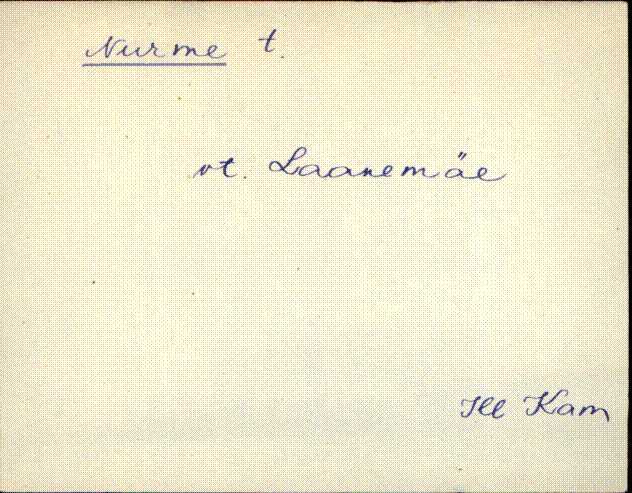 Nurme t.
vt. Laanemäe
Kll Kam